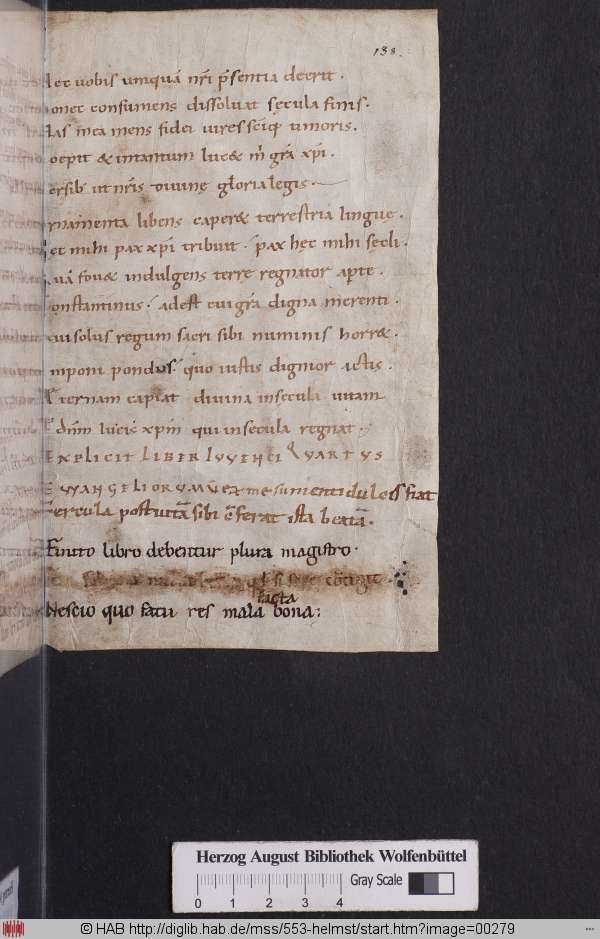 138.
ec uobis umquã nr̃i p̃sentia deerit .
onec consumens dissoluat sęcula finis .
as mea mens fidei uires
oepit & intantum luc& m̃ gr̃a xp̃i .
ersib; ut nr̃is diuinę gloria legis .
rnamenta libens caper& terrestria linguę .
ec mihi pax xp̃i tribuit . pax hęc mihi sęcli .
uã fou& indulgens terre regnator apte .
onstantinus . adest cui gr̃a digna merenti .
ui solus regum sacri sibi nominis horr& .
mponi pondus . quo iustis dignior actis .
ternam capiat diuina insecula uitam
dñm lucis xp̃m qui insecula regnat .
EXPLICIT LIBER IVVENCI QVARTVS
EVVANGELIORVM
fercula post uitã sibi cẽferat ista beatã .
Finito libro debentur plura magistro .
cõtigit
facta
Nescio quo fatu res mala bona :
Herzog August Bibliothek Wolfenbüttel
Gray Scale
0 1 2 3 4
© HAB http://diglib.hab.de/mss/553-helmst/start.htm?image=00279